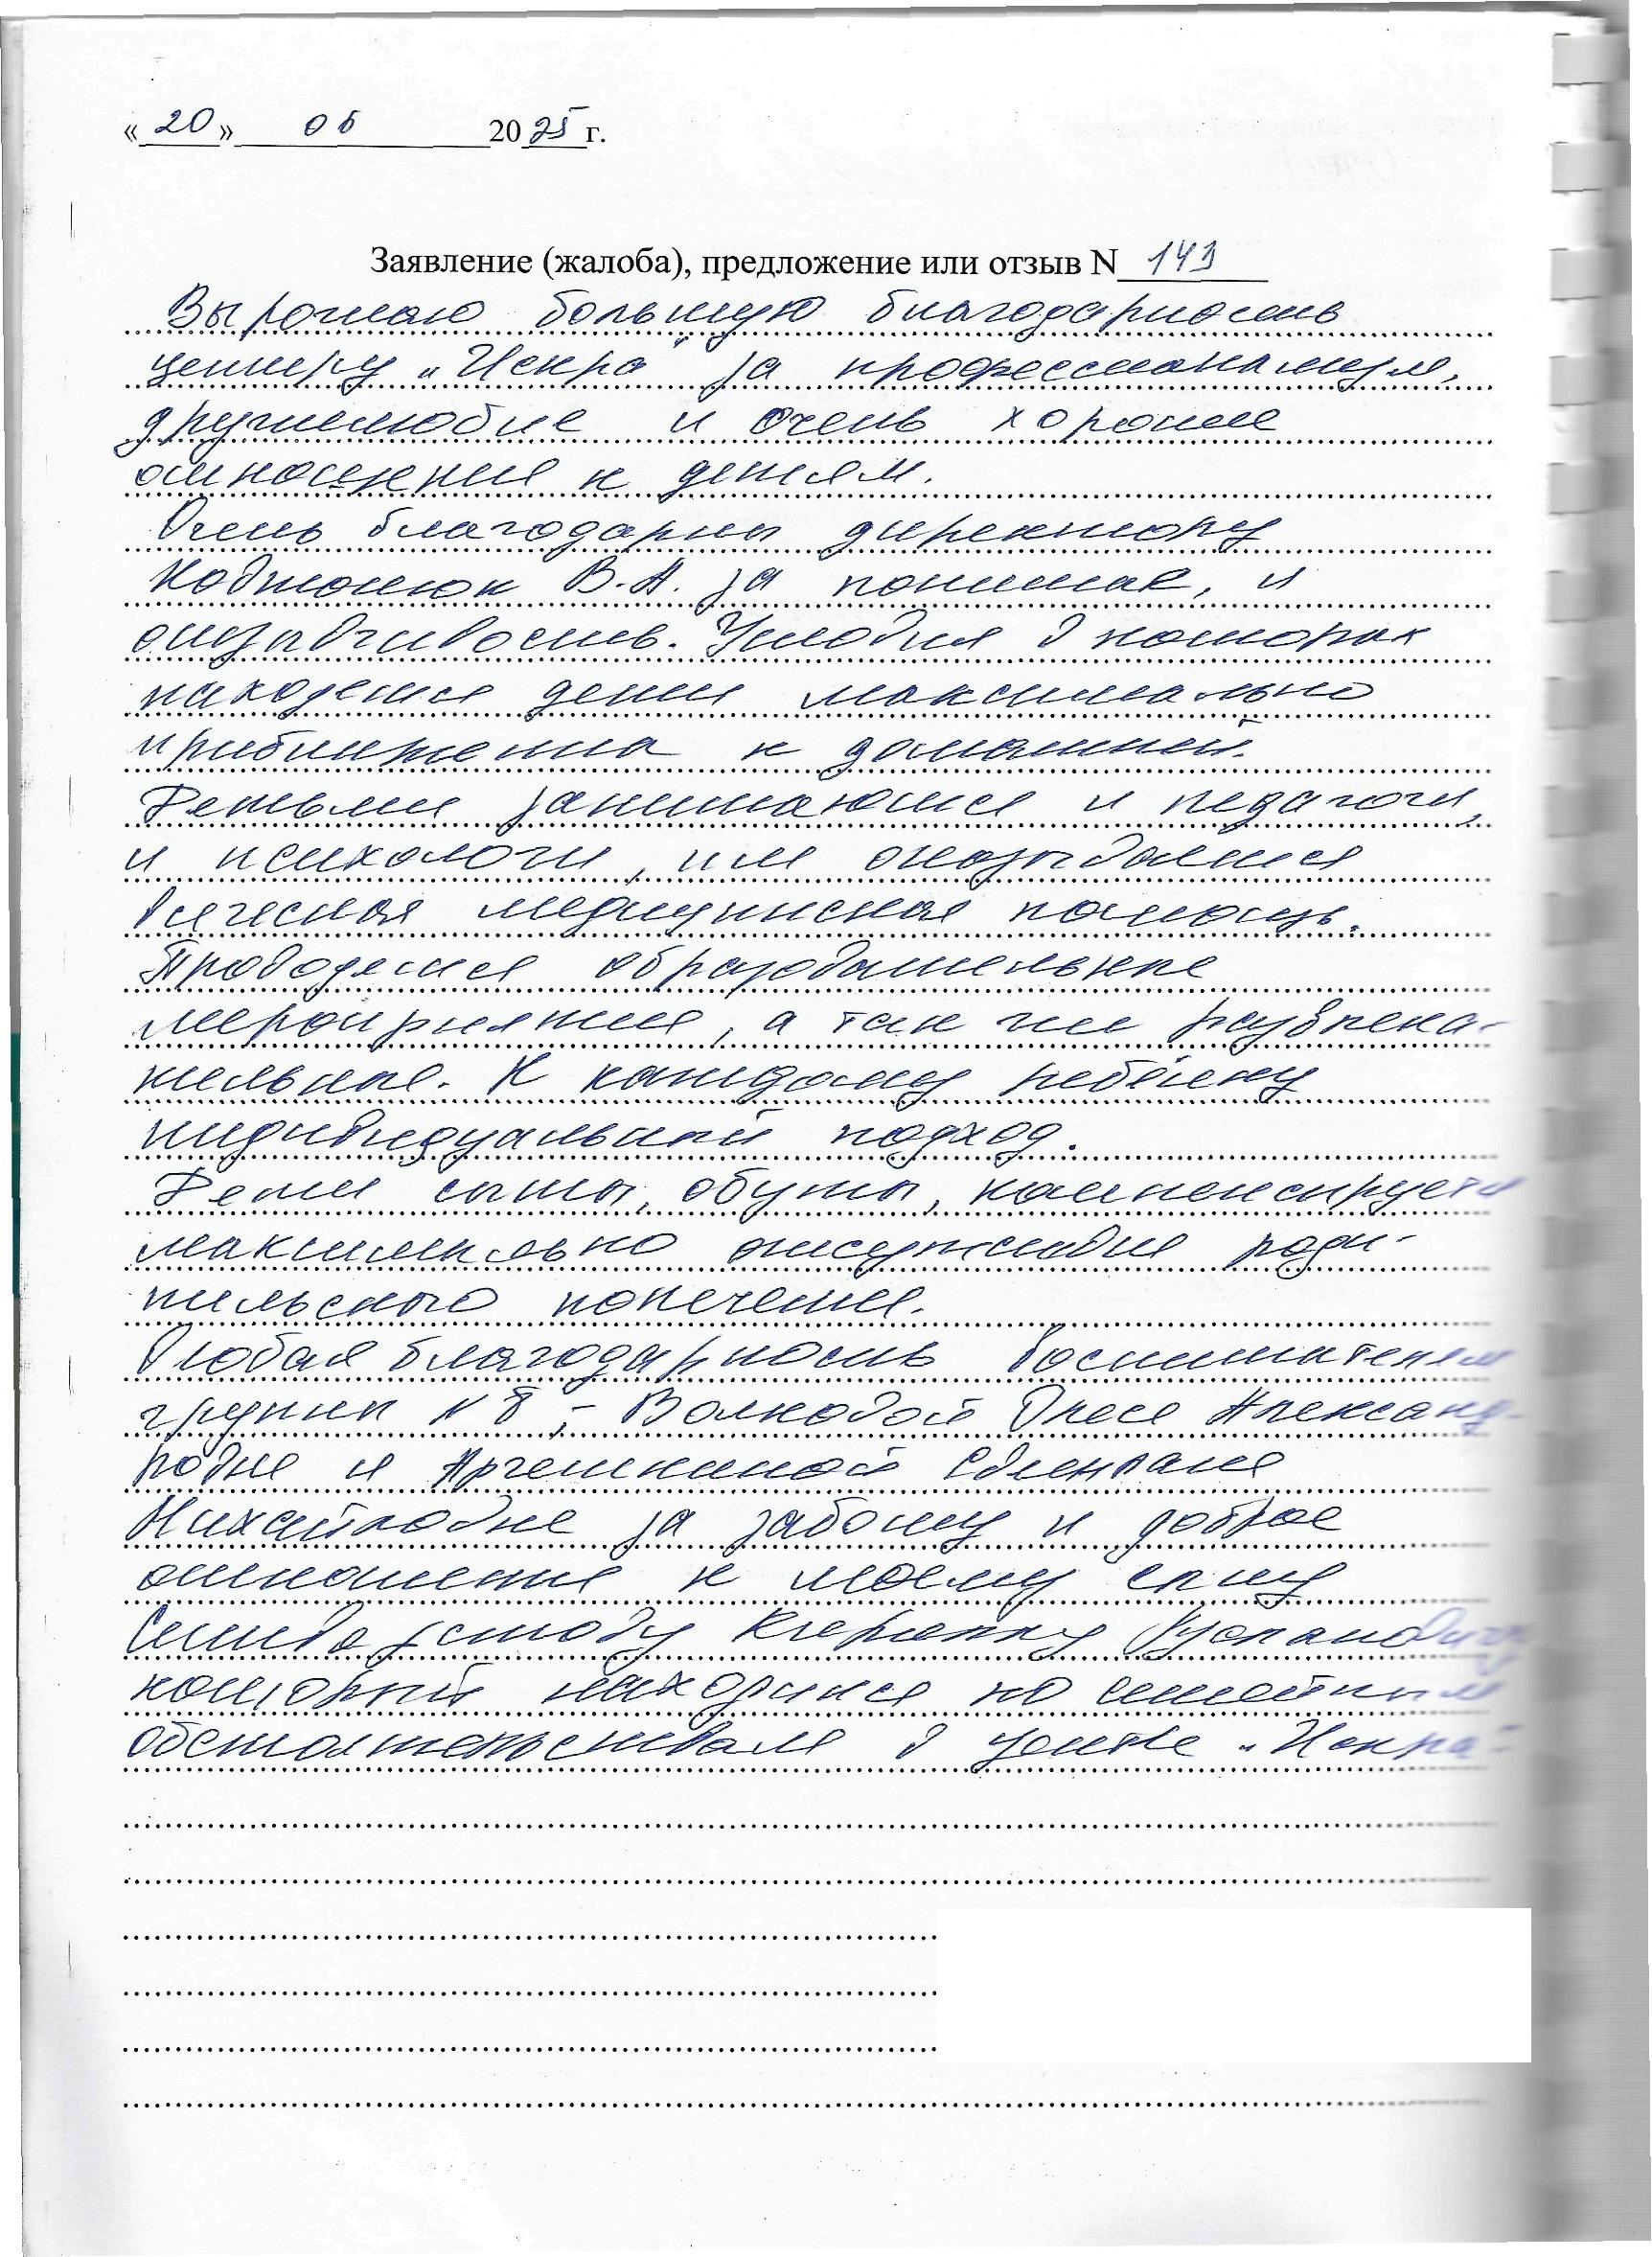 «20» 06 2025 г.
Заявление (жалоба), предложение или отзыв N 143
Выражаю большую благодарность
центру „Искра" за профессионализм,
дружелюбие и очень хорошее
отношения к детям.
Очень благодарны директору
В.А. за понимае, и
отзывчивость. Условия в которах
находятся дети максимально
приближенна к домашней.
Детьми занимаются и педагоги,
и психологи, им оказывается
всяческая медицинская помощь.
Проводятся образовательные
мероприятия, а так же развлека-
тельные. К каждому ребёнку
индивидуальный подход.
Дети сыты, обуты, компенсируется
максимально отсуцтвие роди-
тельского попечения.
Особая благодарность воспитателям
группы N 8, - Волковой Олесе Александ-
ровне и Светлане
Михайловне за заботу и доброе
отношение к моему сыну
Руслановичу
который находился по семейным
обстоятельствам в центре „Искра"